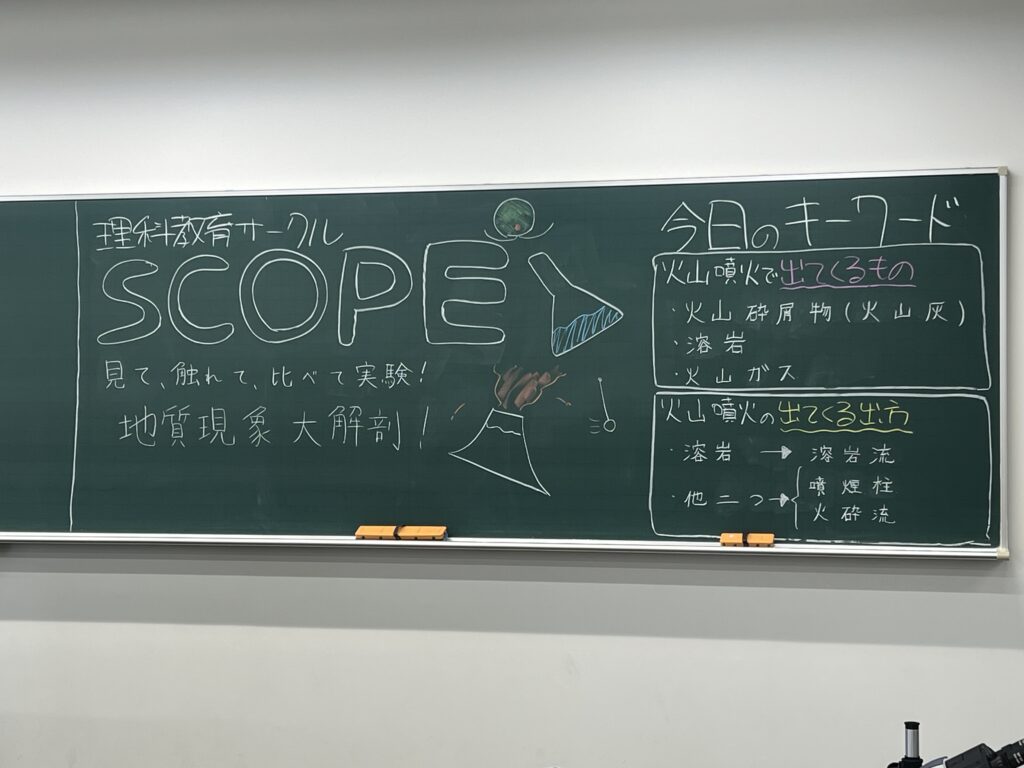 理科教育サークル
SCOPE
見て、触れて、比べて実験！
地質現象大解剖！
今日のキーワード
火山噴火で出てくるもの
・火山砕屑物(火山灰)
・溶岩
・火山ガス
火山噴火の出てくる出方
・溶岩→溶岩流
・他二つ→{噴煙柱
火砕流